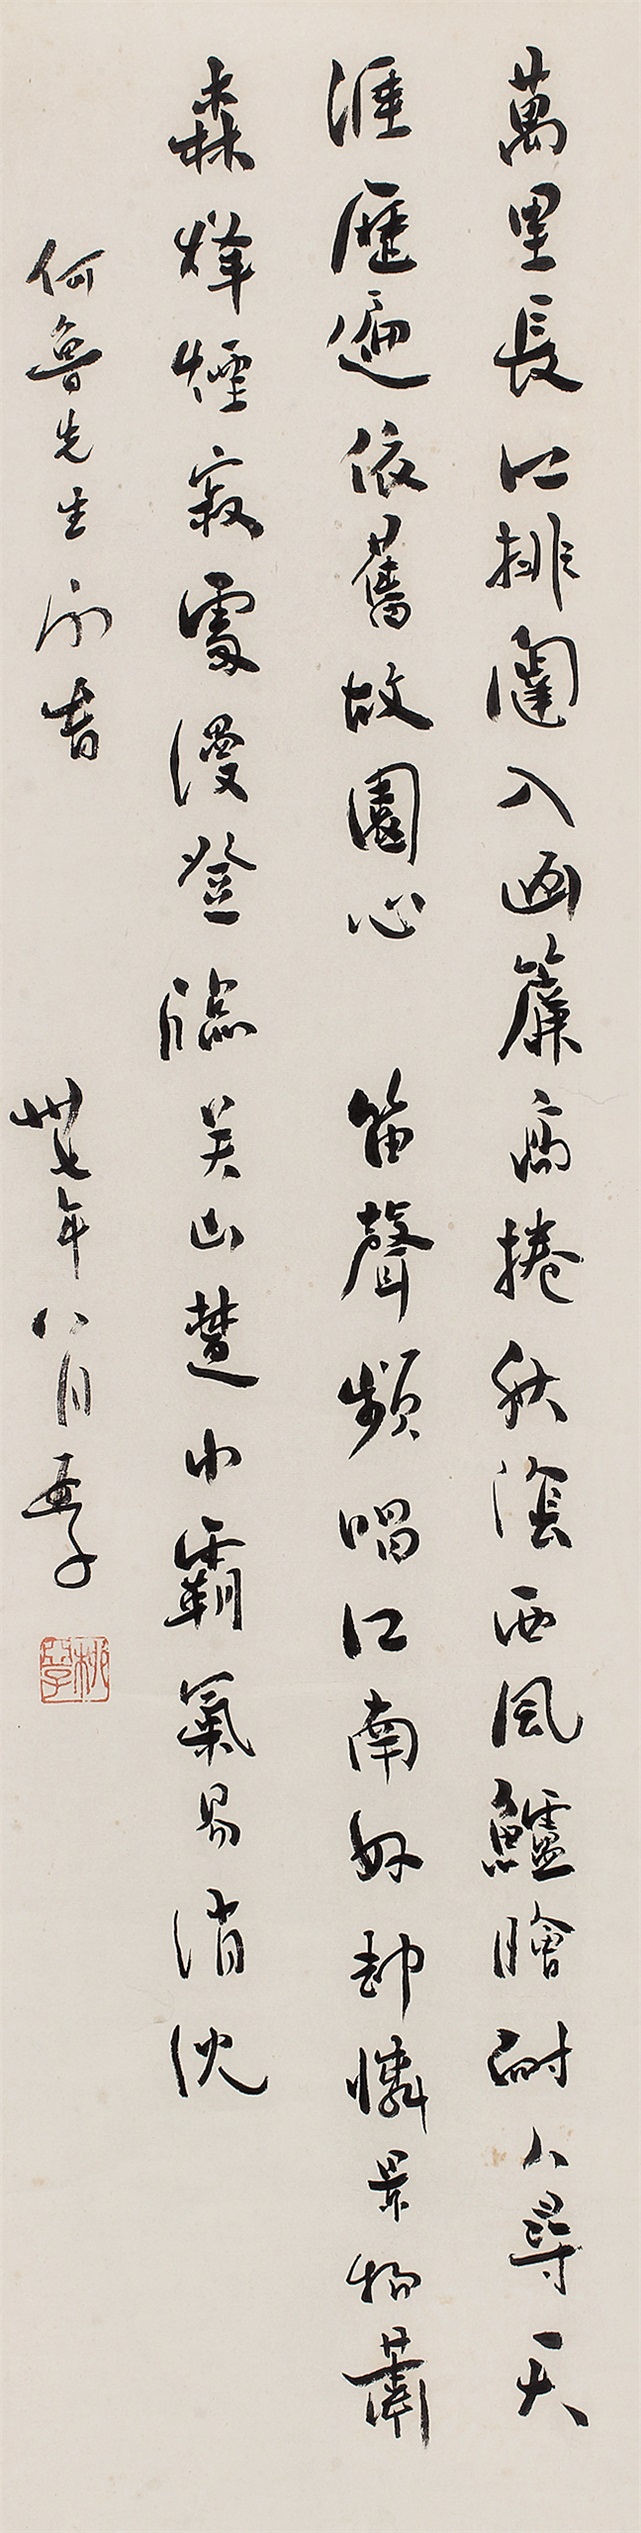 萬里長江排闥入画簾高捲秋陰西風鱸膾耐人尋天
涯歷遍依舊故園心 笛聲頻唱江南好却憐景物蕭
森烽煙寂處漫登臨关山楚尐霸氣易消沈
何魯先生 吟音
卅七年八月孟子